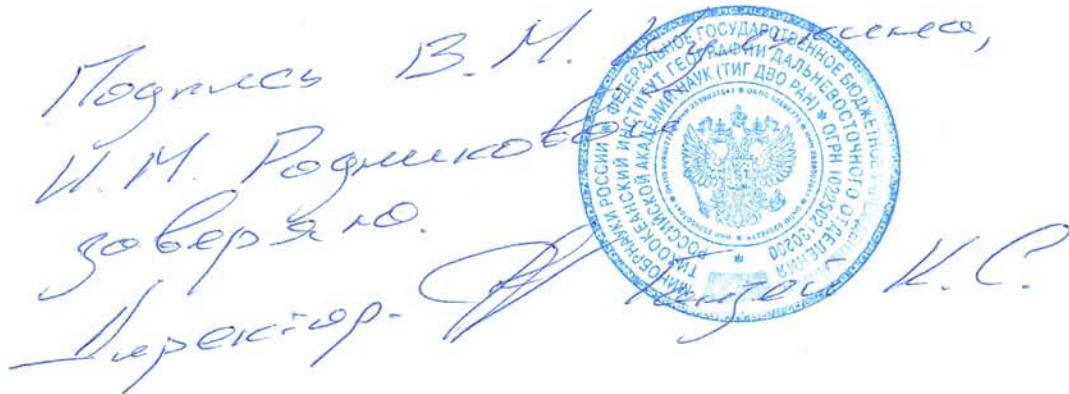 Подпись В. М.
И. М. Родниковой
заверяю.
Директор. Ганзей К. С.
МИНОБРНАУКИ РОССИИ * ФЕДЕРАЛЬНОЕ ГОСУДАРСТВЕННОЕ БЮДЖЕТНОЕ
ТИХООКЕАНСКИЙ ИНСТИТУТ ГЕОГРАФИИ ДАЛЬНЕВОСТОЧНОГО ОТДЕЛЕНИЯ
РОССИЙСКОЙ АКАДЕМИИ НАУК (ТИГ ДВО РАН) * ОГРН